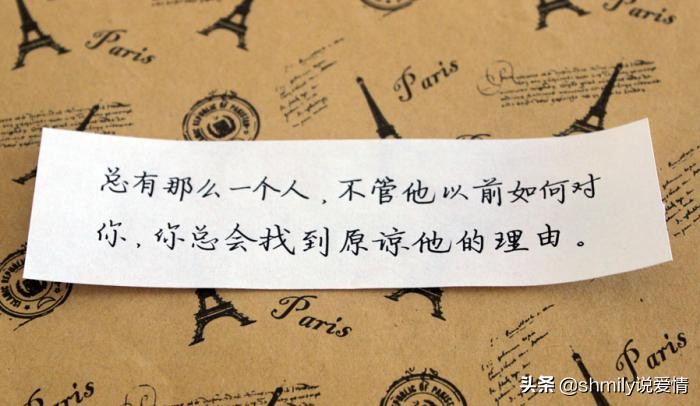 Paris
Paris
总有那么一个人，不管他以前如何对
你，你总会找到原谅他的理由。
Paris
头条 @shmily说爱情